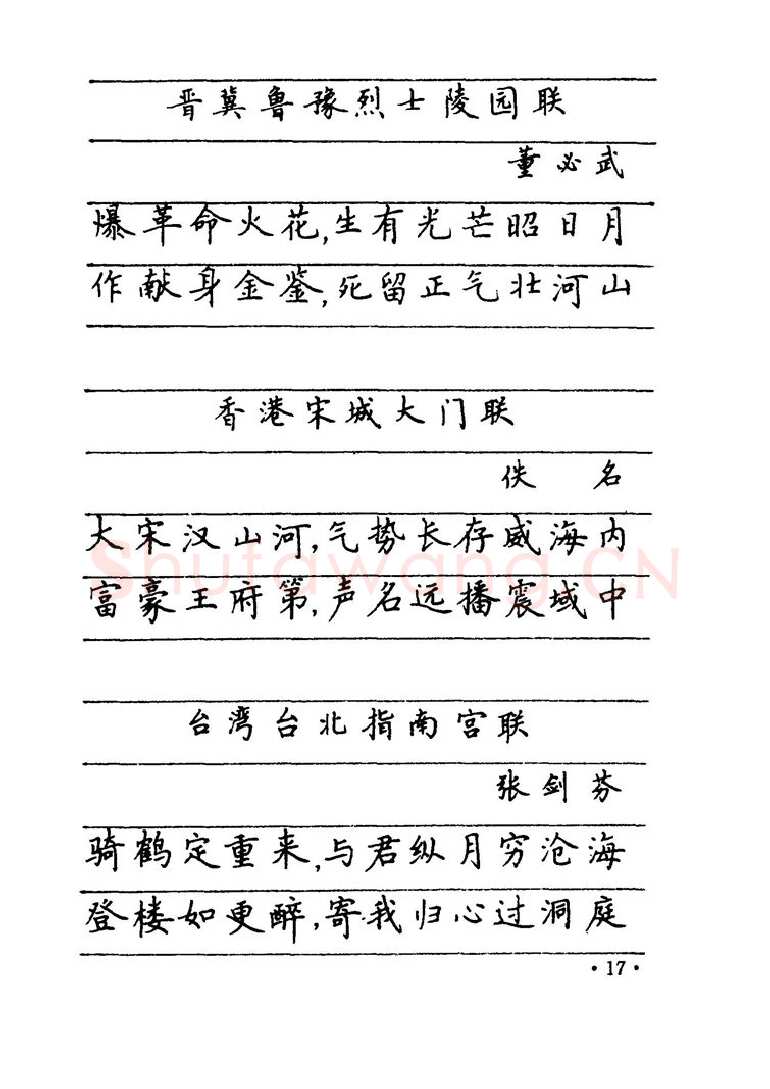 晋冀鲁豫烈士陵园联
董必武
爆革命火花,生有光芒昭日月
作献身金鉴,死留正气壮河山
香港宋城大门联
佚 名
大宋汉山河,气势长存威海内
富豪王府第,声名远播震域中
台湾台北指南宫联
张剑芬
骑鹤定重来,与君纵月穷沧海
登楼如更醉,寄我归心过洞庭
·17·
Shufawang.CN